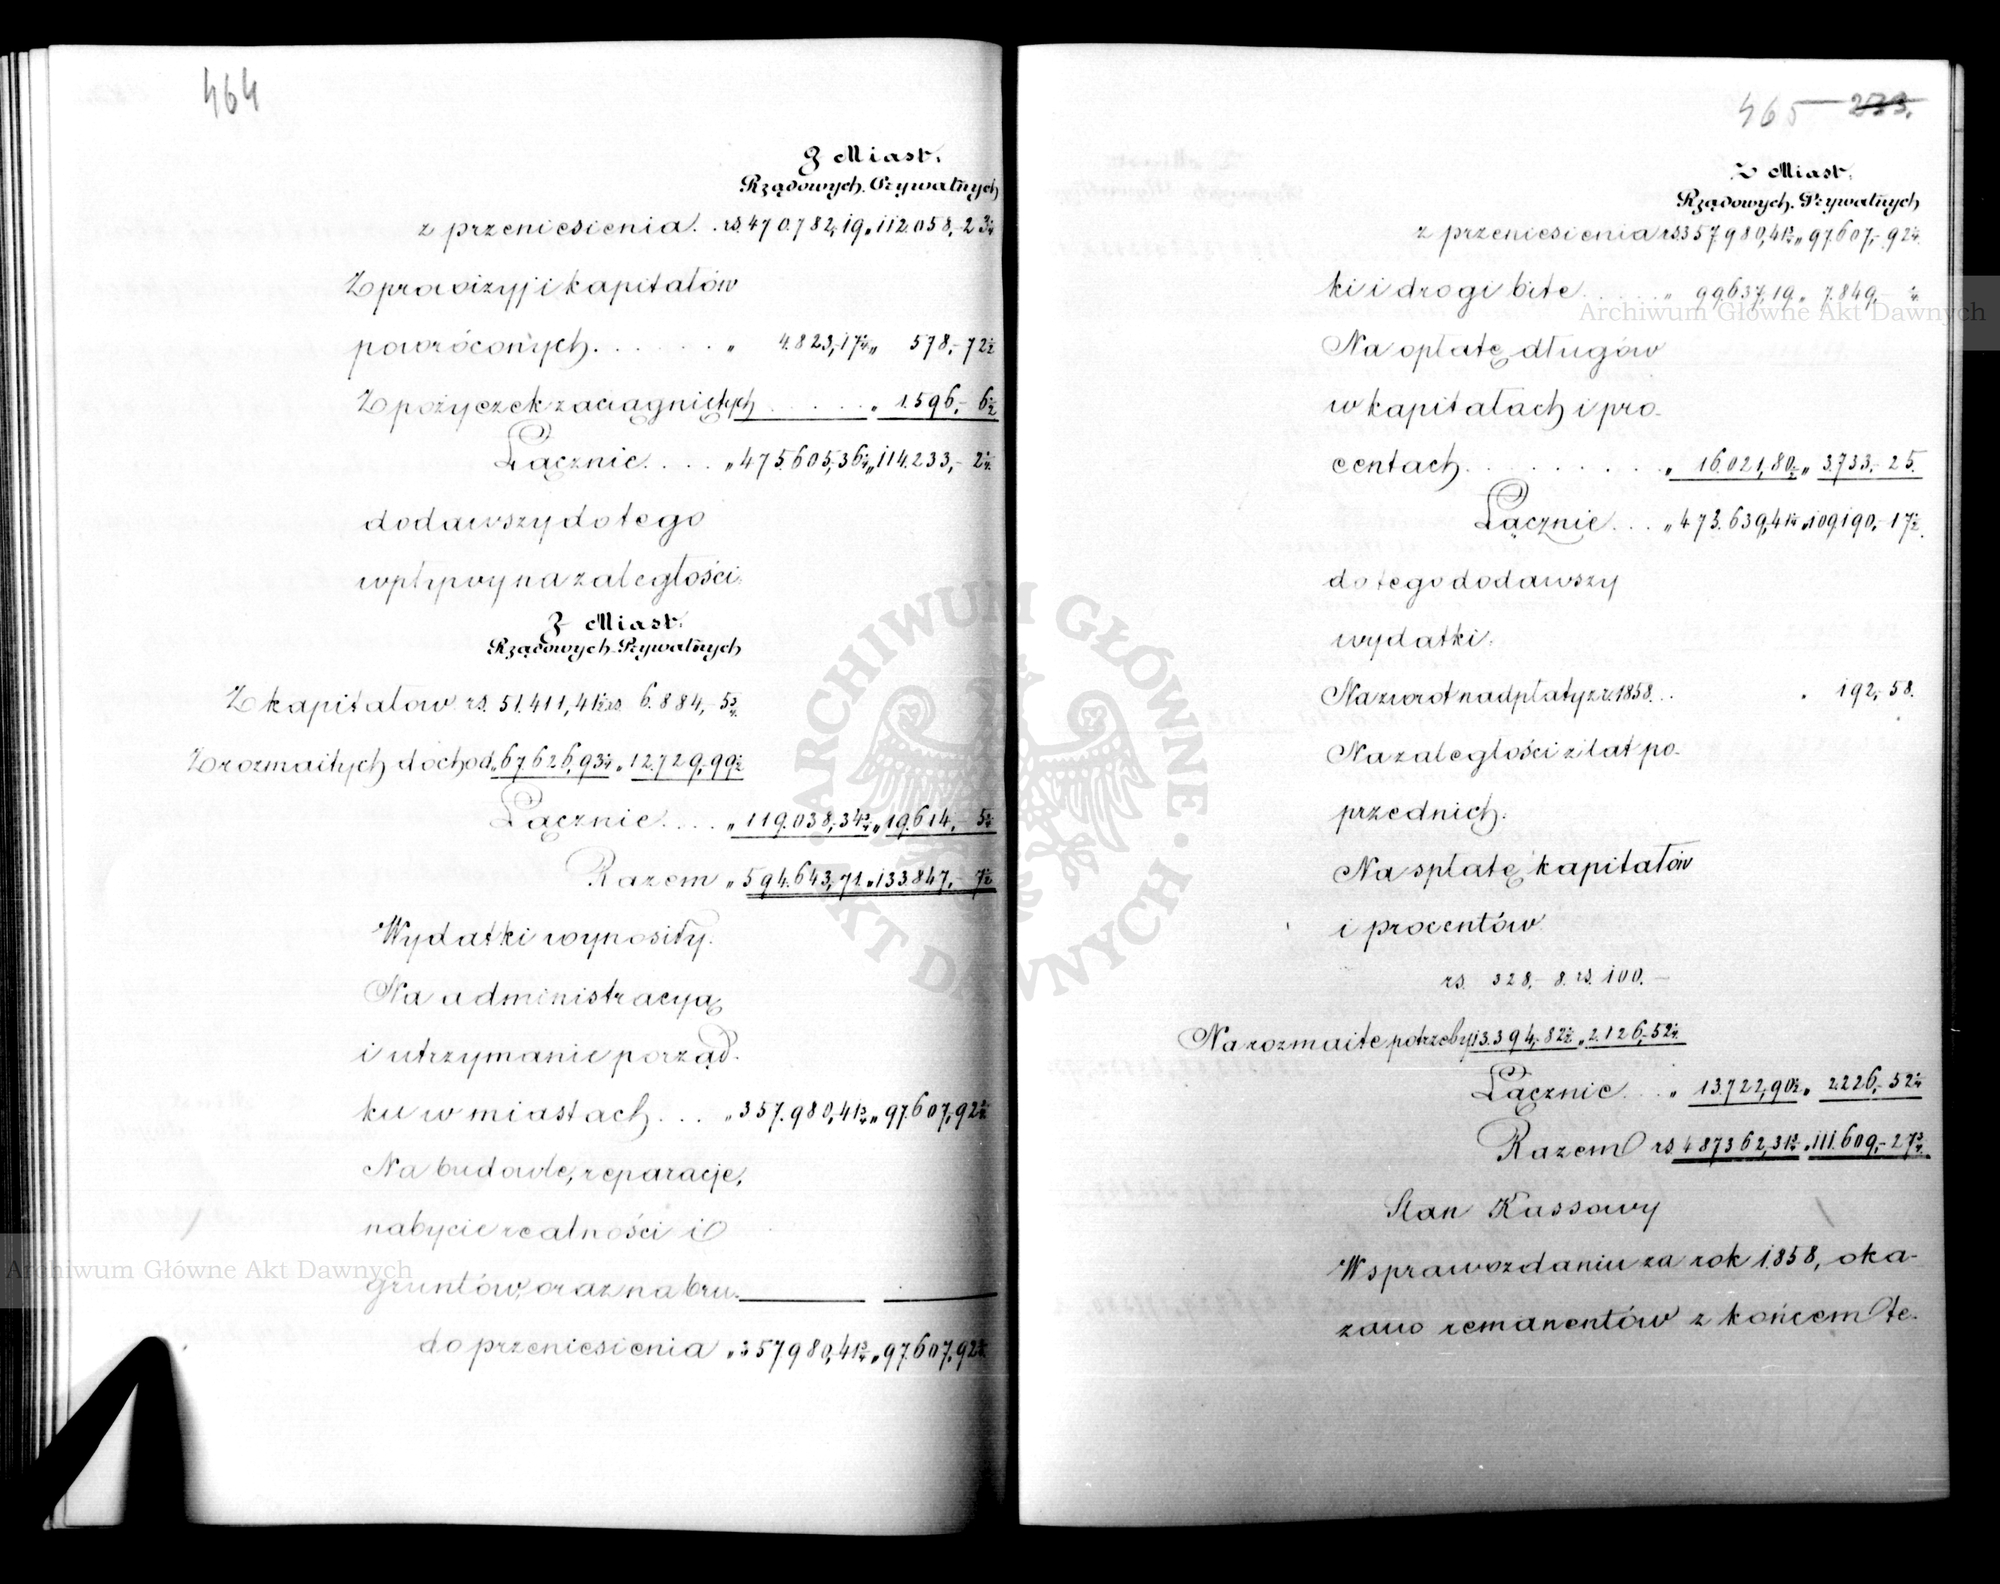 464
Z Miast.
Rządowych. Prywatnych
z przeniesienia. . rs. 470.782,-19 „ 112.058,-23¼
Z prowizyj i kapitałów
powróconych. . . . . . . „ 4.823,-17¼ „ 578,-72½
Z pożyczek zaciągniętych . . . . . „ 1.596,- 6½
Łącznie. . . . „ 475.605,-36¼ „ 114.233,- 2¼
dodawszy do tego
wpływy na zaległości:
Z Miast.
Rządowych. Prywatnych
Z kapitałów rs. 51.411,41½ rs. 6.884,- 5¾
Z rozmaitych dochod. „ 67.626,93¼ „ 12.729,-99½
Łącznie. . . . „ 119.038,-34¾ „ 19.614,- 5¼
Razem „ 594.643,-71 „ 133.847,- 7½
Wydatki wynosiły.
Na administracyą
i utrzymanie porząd-
ku w miastach. . . . „ 357.980,-41¾ „ 97.607,-92¼
Na budowle, reparacje,
nabycie realności i
gruntów, oraz na bru-
do przeniesienia „ 357980,-41¾ „ 97.607,-92¼
465 233.
Z Miast.
Rządowych. Prywatnych
z przeniesienia rs. 357.980,41¾ „ 97.607,-92¼
ki i drogi bite . . . . . „ 99.637,19 „ 7.849,-
Na opłatę długów
w kapitałach i pro-
centach. . . . . . . . . . „ 16.021,80½ „ 3.733,-25.
Łącznie. . . „ 473.639,41¼ „ 109.190,-17½.
do tego dodawszy
wydatki.
Na zwrot nadpłaty z r. 1858. . . „ 192,-58.
Na zaległości z lat po-
przednich.
Na spłatę kapitałów
i procentów
rs. 328,-8. rs. 100.-
Na rozmaite potrzeby 13.394,-82½ „ 2.126,-52¼
Łącznie. . . „ 13.722,90½ „ 2.226,-52¼
Razem rs. 487362,31¾ „ 111.609,-27¾.
Stan Kassowy
W sprawozdaniu za rok 1858, oka-
zano remanentów z końcem te-
Archiwum Główne Akt Dawnych
Archiwum Główne Akt Dawnych
ARCHIWUM GŁÓWNE AKT DAWNYCH